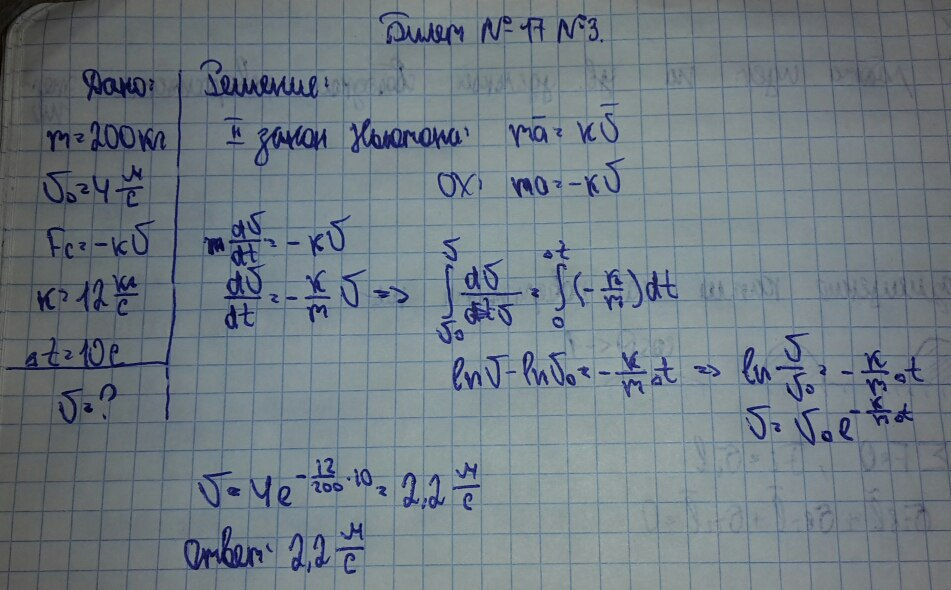 Билет № 17 №3.
Дано:
m = 200 кг
υ₀ = 4 м/с
Fc = -κυ
κ = 12 кг/с
Δt = 10 с
υ = ?
Решение:
II закон Ньютона: mā = κῡ
OX: ma = -κυ
m dυ/dt = -κυ
dυ/dt = -κ/m υ => ∫_{υ₀}^{υ} dυ/υ = ∫_{0}^{Δt} (-κ/m) dt
ln υ - ln υ₀ = -κ/m Δt => ln υ/υ₀ = -κ/m Δt
υ = υ₀ e^{-κ/m Δt}
υ = 4e^{-12/200 · 10} = 2,2 м/с
Ответ: 2,2 м/с